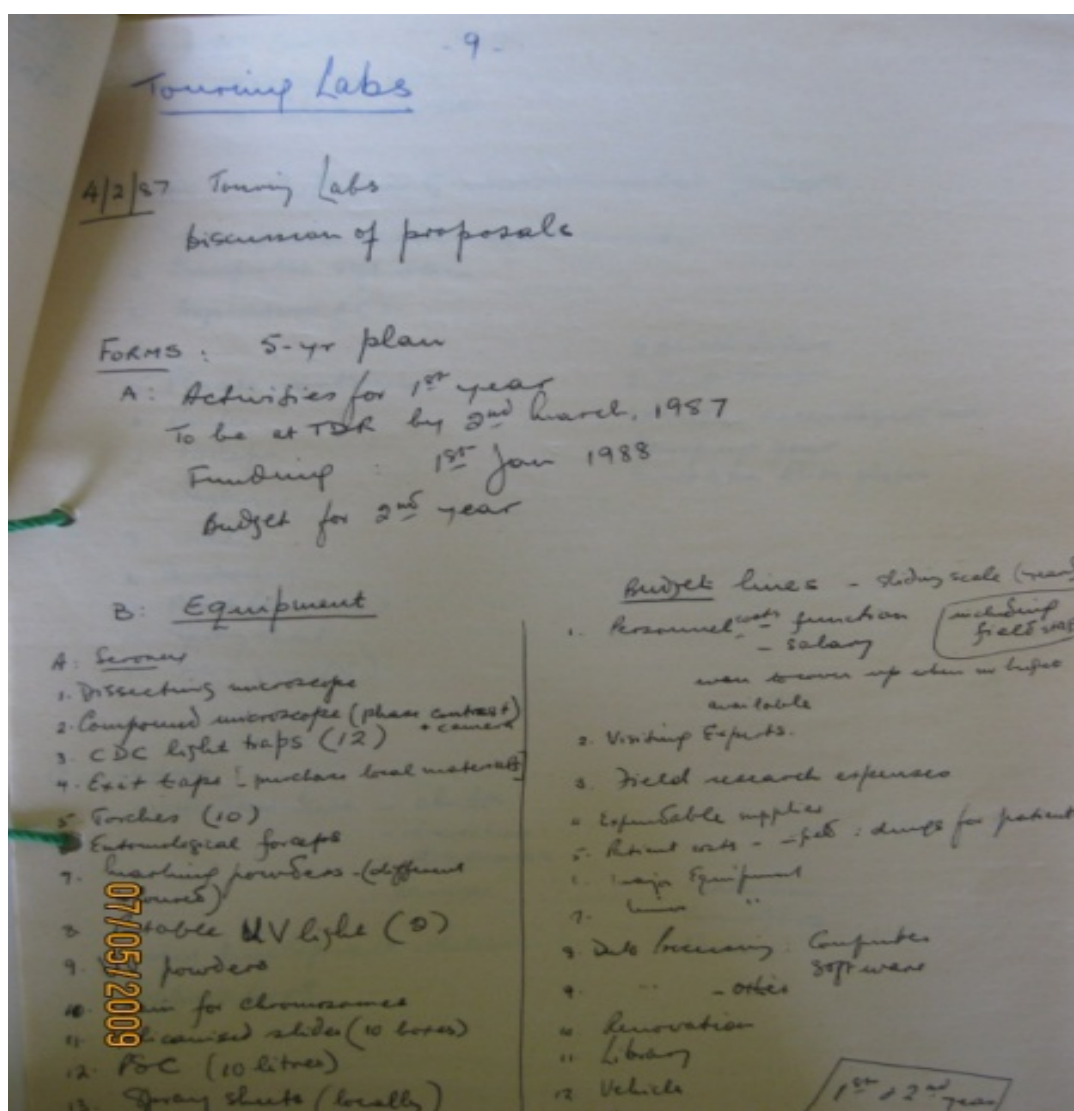 - 9 -
Touring Labs
4/2/87 Touring Labs
Discussion of proposals
FORMS: 5-yr plan
A: Activities for 1st year
To be at TDR by 2nd March, 1987
Funding : 1st Jan 1988
Budget for 2nd year
B: Equipment
A:
1. Dissecting microscope
2. Compound microscope (phase contrast)
+ camera
3. CDC light traps (12)
4. Exit traps [purchase local materials]
5. Torches (10)
Entomological forceps
7. Marking powders - (different
8. UV light (2)
9. powders
10. for chromosomes
11. slides (10 boxes)
12. (10 litres)
13. Spray sheets (locally)
Budget lines - sliding scale
1. Personnel costs - function
- salary
including
field
available
2. Visiting Experts.
3. Field research expenses
4. Expendable supplies
5. Patient costs - : drugs for patient
Major Equipment
7. Minor "
8. Data Processing: Computer
Software
9. " - other
10. Renovation
11. Library
12. Vehicle
1st + 2nd year
07/05/2009